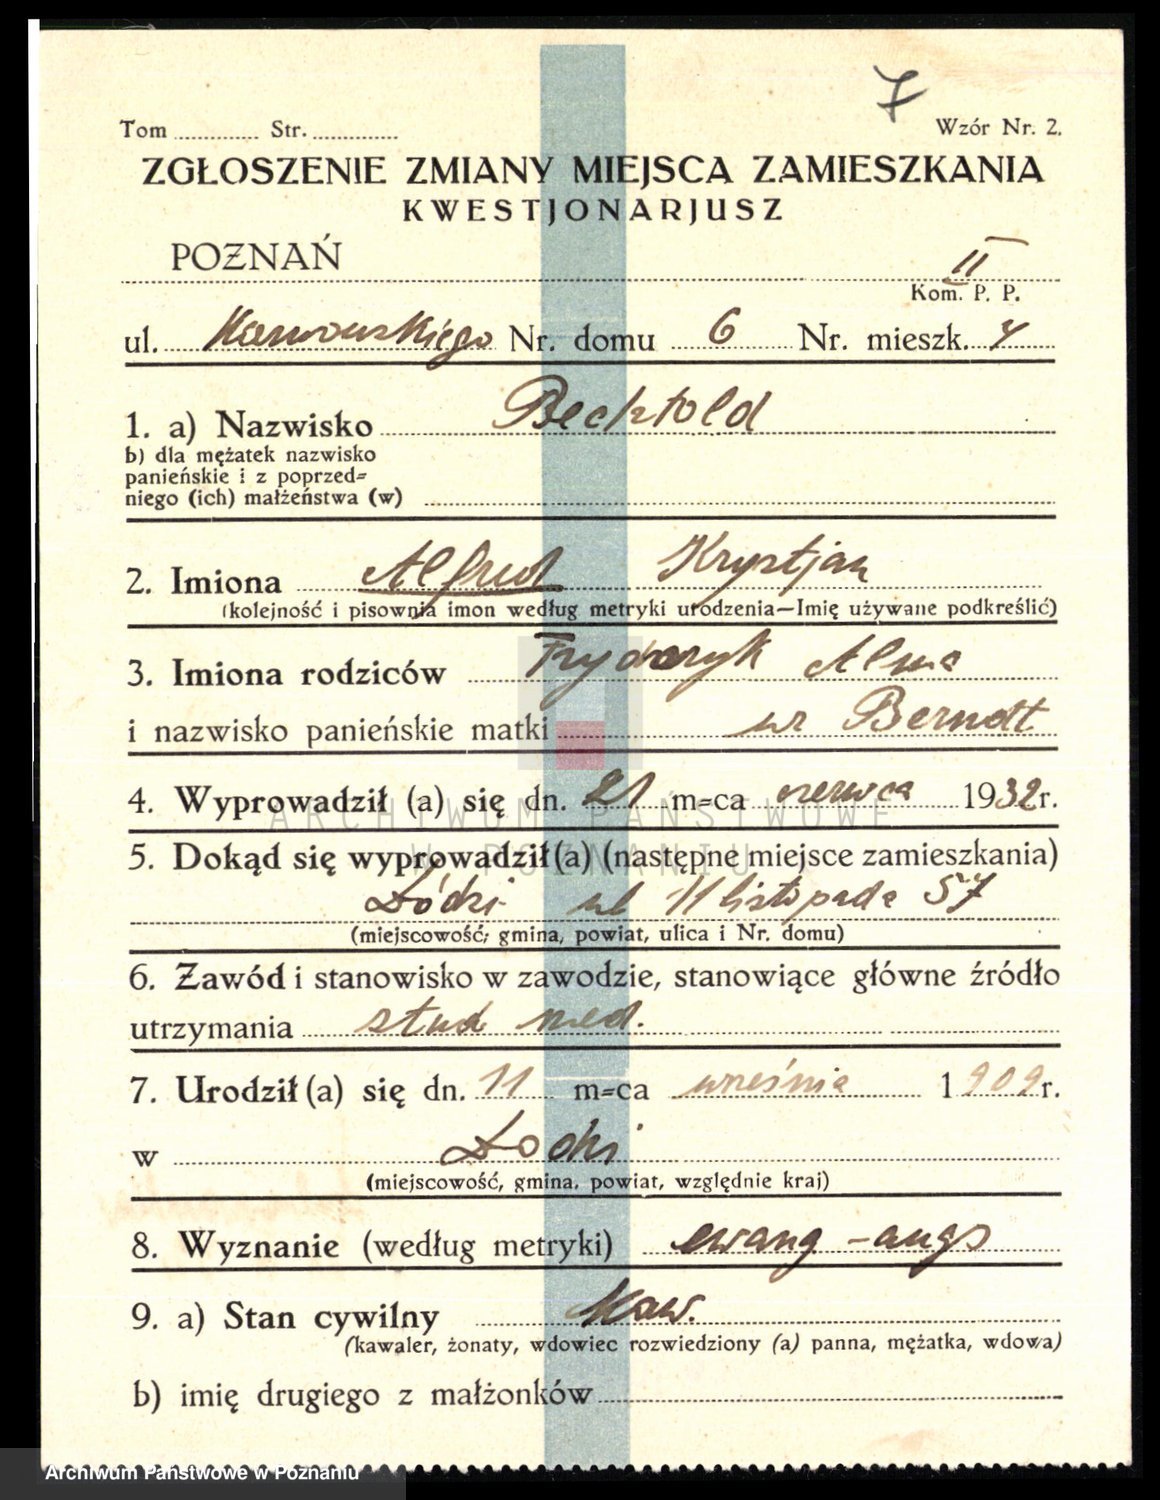 7
Tom ............ Str. ............ Wzór Nr. 2.
ZGŁOSZENIE ZMIANY MIEJSCA ZAMIESZKANIA
KWESTJONARJUSZ
POZNAŃ II
Kom. P. P.
ul. Karwowskiego Nr. domu 6 Nr. mieszk. 4
1. a) Nazwisko Bechtold
b) dla mężatek nazwisko
panieńskie i z poprzed=
niego (ich) małżeństwa (w)
2. Imiona Alfred Krystjan
(kolejność i pisownia imon według metryki urodzenia—Imię używane podkreślić)
3. Imiona rodziców Fryderyk Alma
i nazwisko panieńskie matki ur Berndt
4. Wyprowadził (a) się dn. 21 m=ca czerwca 1932 r.
ARCHIWUM PAŃSTWOWE
W POZNANIU
5. Dokąd się wyprowadził (a) (następne miejsce zamieszkania)
Łódzi ul 11 listopada 57
(miejscowość, gmina, powiat, ulica i Nr. domu)
6. Zawód i stanowisko w zawodzie, stanowiące główne źródło
utrzymania stud med.
7. Urodził (a) się dn. 11 m=ca września 1909 r.
w Łodzi
(miejscowość, gmina, powiat, względnie kraj)
8. Wyznanie (według metryki) ewang - augs
9. a) Stan cywilny kaw.
(kawaler, żonaty, wdowiec rozwiedziony (a) panna, mężatka, wdowa)
b) imię drugiego z małżonków
Archiwum Państwowe w Poznaniu